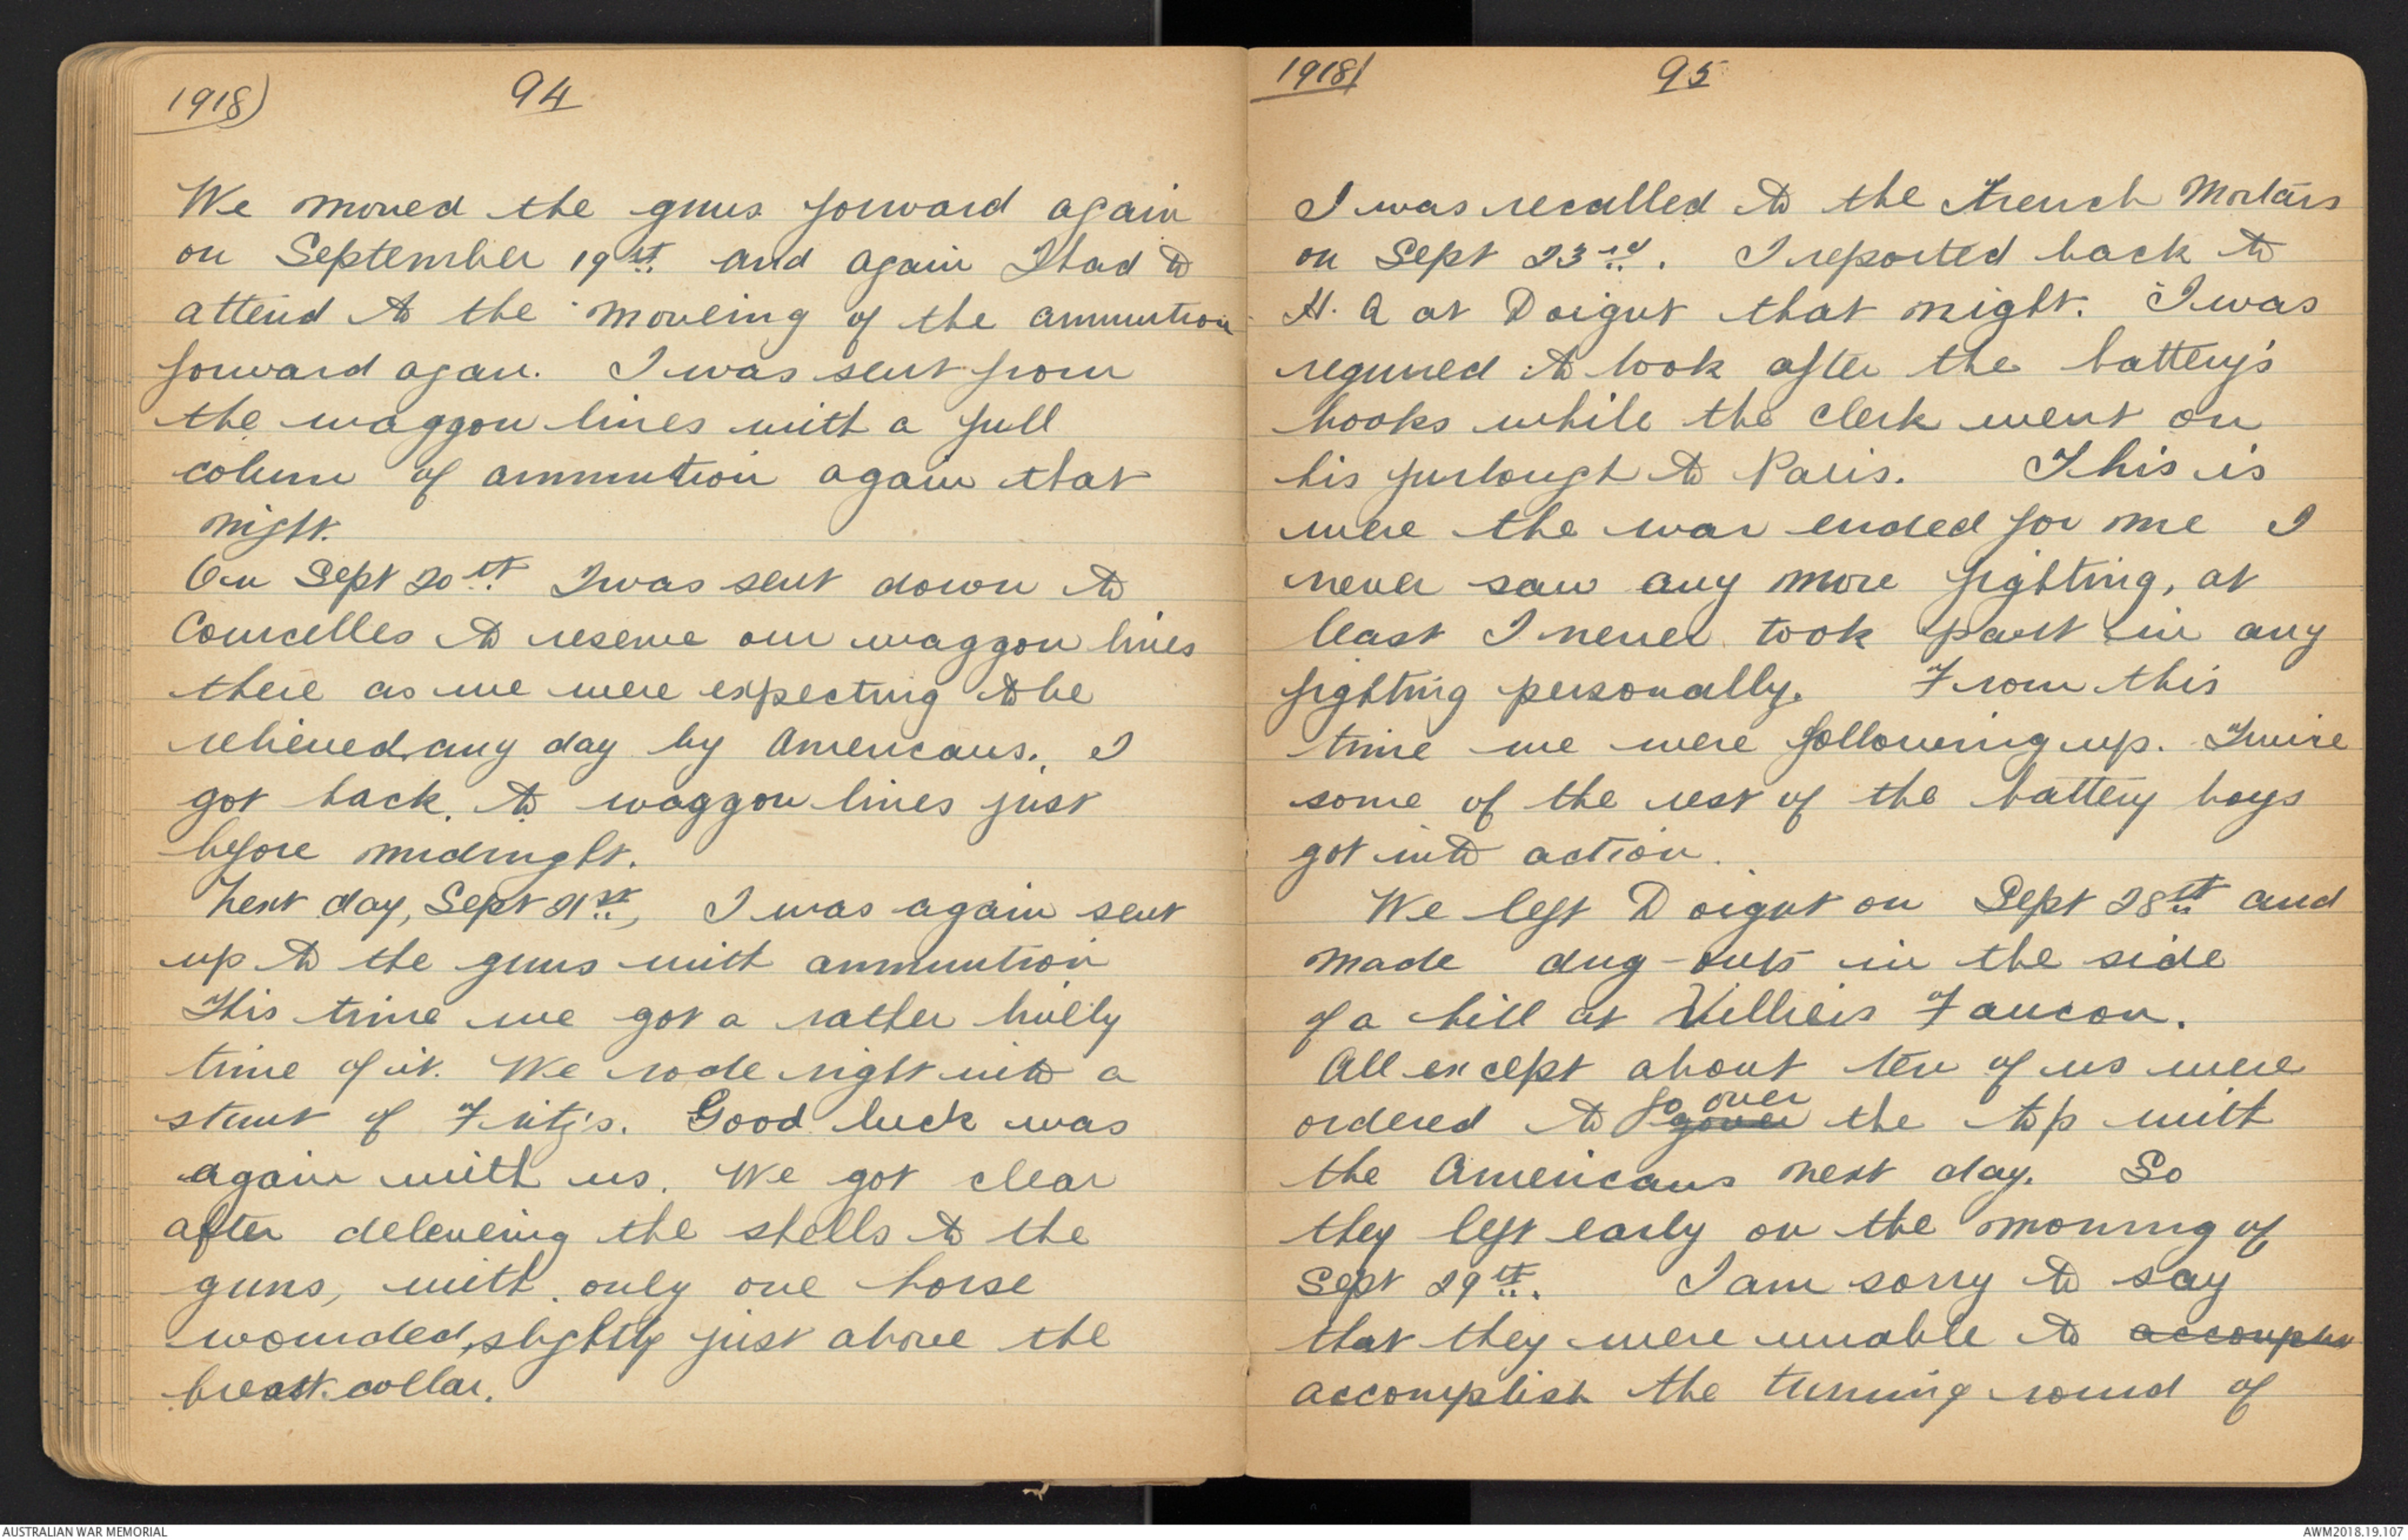 1918)
94
We moved the guns forward again
on September 19st. and again I had to
attend to the moveing of the ammution
forward again. I was sent from
the waggon lines with a full
colunn of ammution again that
night.
On Sept 20th I was sent down to
Courcelles to reserve our waggon lines
there as we were expecting to be
relieved any day by Americans. I
got back to waggon lines just
before midnight.
Next day, Sept 21st, I was again sent
up to the guns with ammuntion
This time we got a rather lively
time of it. We rode right into a
stunt of Fritz's. Good luck was
again with us. We got clear
after delevering the shells to the
guns, with only one horse
wounded, slightly just above the
breast collar.
1918)
95
I was recalled to the Trench Mortars
on Sept 23rd. I reported back to
H. Q at Doigut that night. I was
required to look after the battery's
books while the clerk went on
his furlough to Paris. This is
were the war ended for me I
never saw any more fighting, at
least I never took part in any
fighting personally. From this
time we were following up. Twice
some of the rest of the battery boys
got into action.
We left Doigut on Sept 28th and
made dug-outs in the side
of a hill at Villiers Faucon.
All except about ten of us were
go over
ordered to gover the top with
the Americans next day. So
they left early on the morning of
Sept 29th. I am sorry to say
that they were unable to
accomplish the turning round of
AUSTRALIAN WAR MEMORIAL
AWM2018.19.107